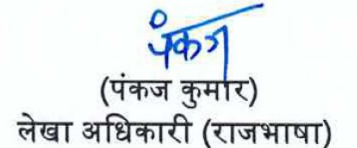 पंकज
(पंकज कुमार)
लेखा अधिकारी (राजभाषा)